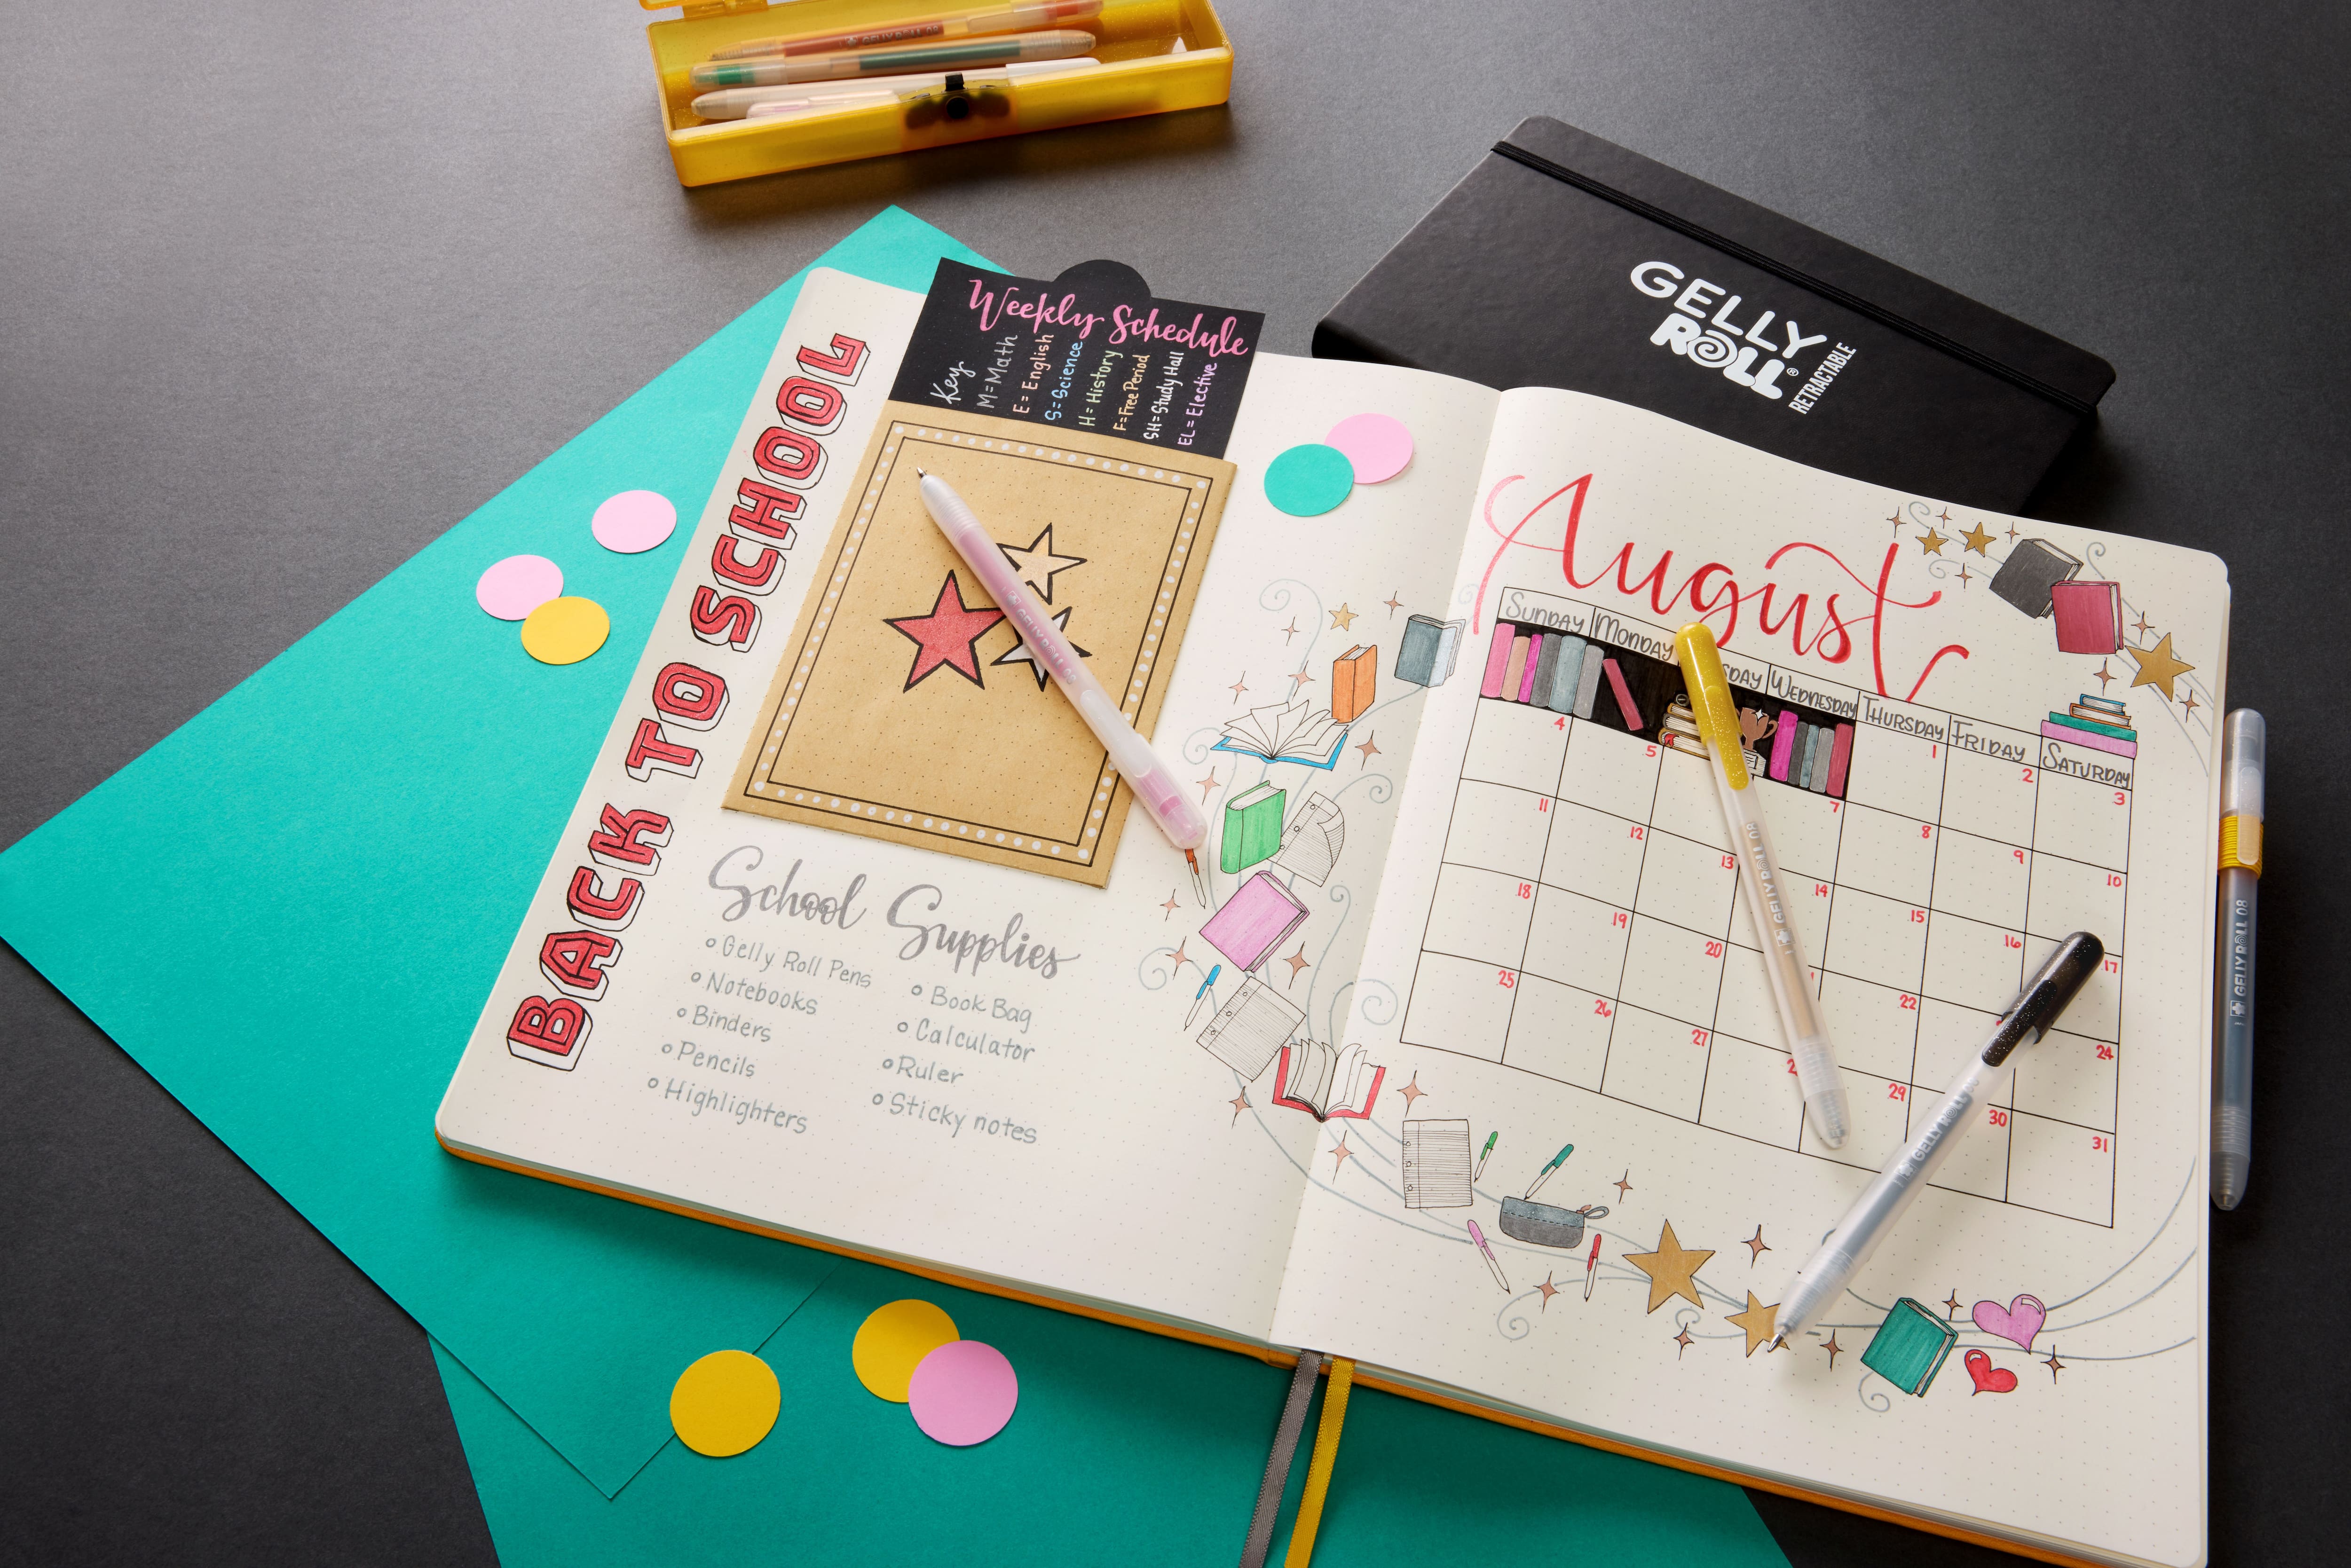 GELLY ROLL 08
GELLY
ROLL®
RETRACTABLE
Weekly Schedule
Key
M=Math
E=English
S=Science
H=History
F=Free Period
SH=Study Hall
EL=Elective
BACK TO SCHOOL
GELLY ROLL 08
School Supplies
Gelly Roll Pens
Notebooks
Binders
Pencils
Highlighters
Book Bag
Calculator
Ruler
Sticky notes
August
SUNDAY MONDAY SDAY WEDNESDAY THURSDAY FRIDAY SATURDAY
1 2 3
4 5 7 8 9 10
11 12 13 14 15 16 17
18 19 20 22 24
25 26 27 29 30 31
GELLY ROLL 08
GELLY ROLL 08
GELLY ROLL 08